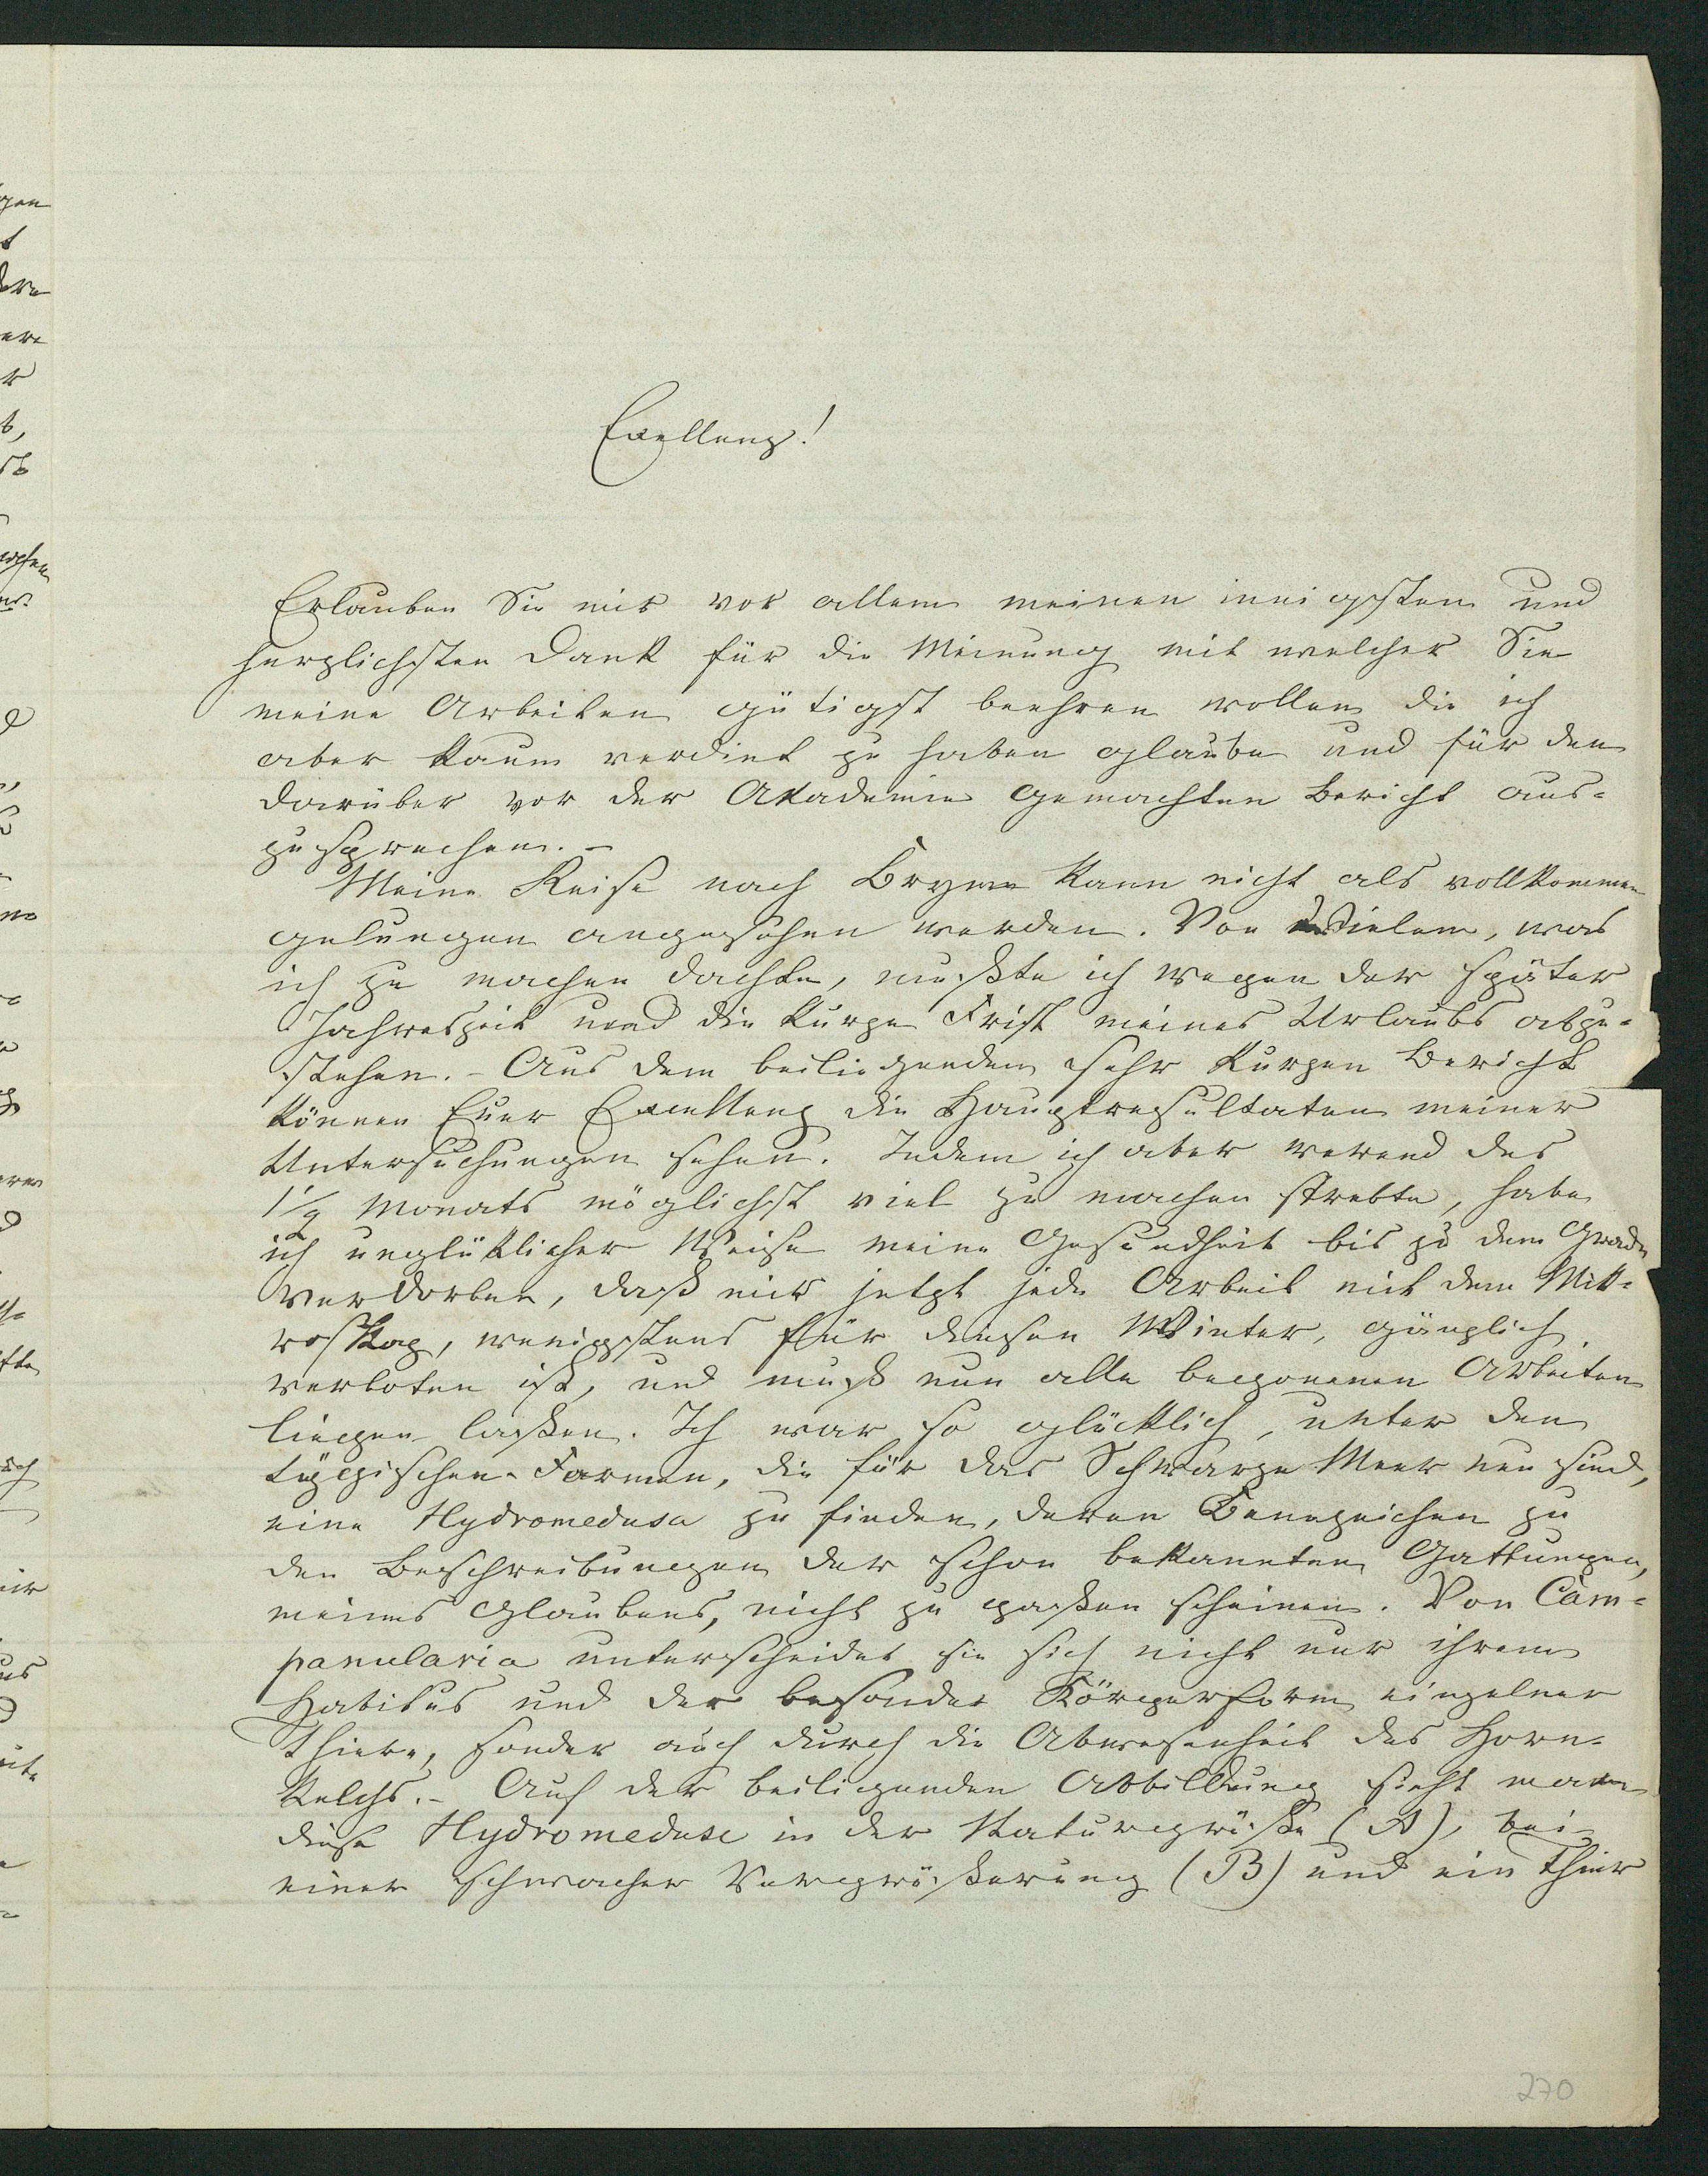 Exellenz!
Erlauben Sie mir vor allem meinen innigsten und
herzlichsten Dank für die Meinung mit welcher Sie
meine Arbeiten gütigst beehren wollen die ich
aber kaum verdint zu haben glaube und für den
darüber vor der Akademie gemachten Bericht aus-
zusprechen. –
Meine Reise nach Krym kann nicht als vollkommen
gelungen angesehen werden. Von Vielem, was
ich zu machen dachte, mußte ich wegen der später
Jahreszeit und die kurze Frist meines Urlaubs abzu-
stehen. – Aus dem beiliegenden sehr kurzen Bericht
können Euer Excellenz die Hauptresultaten meiner
Untersuchungen sehen. Indem ich aber werend des
1½ Monats möglichst viel zu machen strebte, habe
ich unglüklicher Weise meine Gesundheit bis zu dem Grade
verdorben, daß mir jetzt jede Arbeit mit dem Mik-
roskop, wenigstens für diesen Winter, gänzlich
verboten ist, und muß nun alle begonenen Arbeiten
liegen laßen. Ich war so glücklich, unter den
typpischen Formen, die für das Schwarze Meer neu sind,
eine Hydromedusa zu finden, deren Kenezeichen zu
den Beschreibungen der schon bekannten Gattungen,
meines Glaubens, nicht zu paßen scheinen. Von Cam-
panularia unterscheidet sie sich nicht nur ihrem
Habitus und der besonder Körperform einzelner
Thiere, sonder auch durch die Abwesenheit des Horn-
kelchs. – Auf der beiligenden Abbildung sieht man
diese Hydromeduse in der Naturgröße (A), bei
einer schwacher Vergrößerung (B) und ein Thier
270